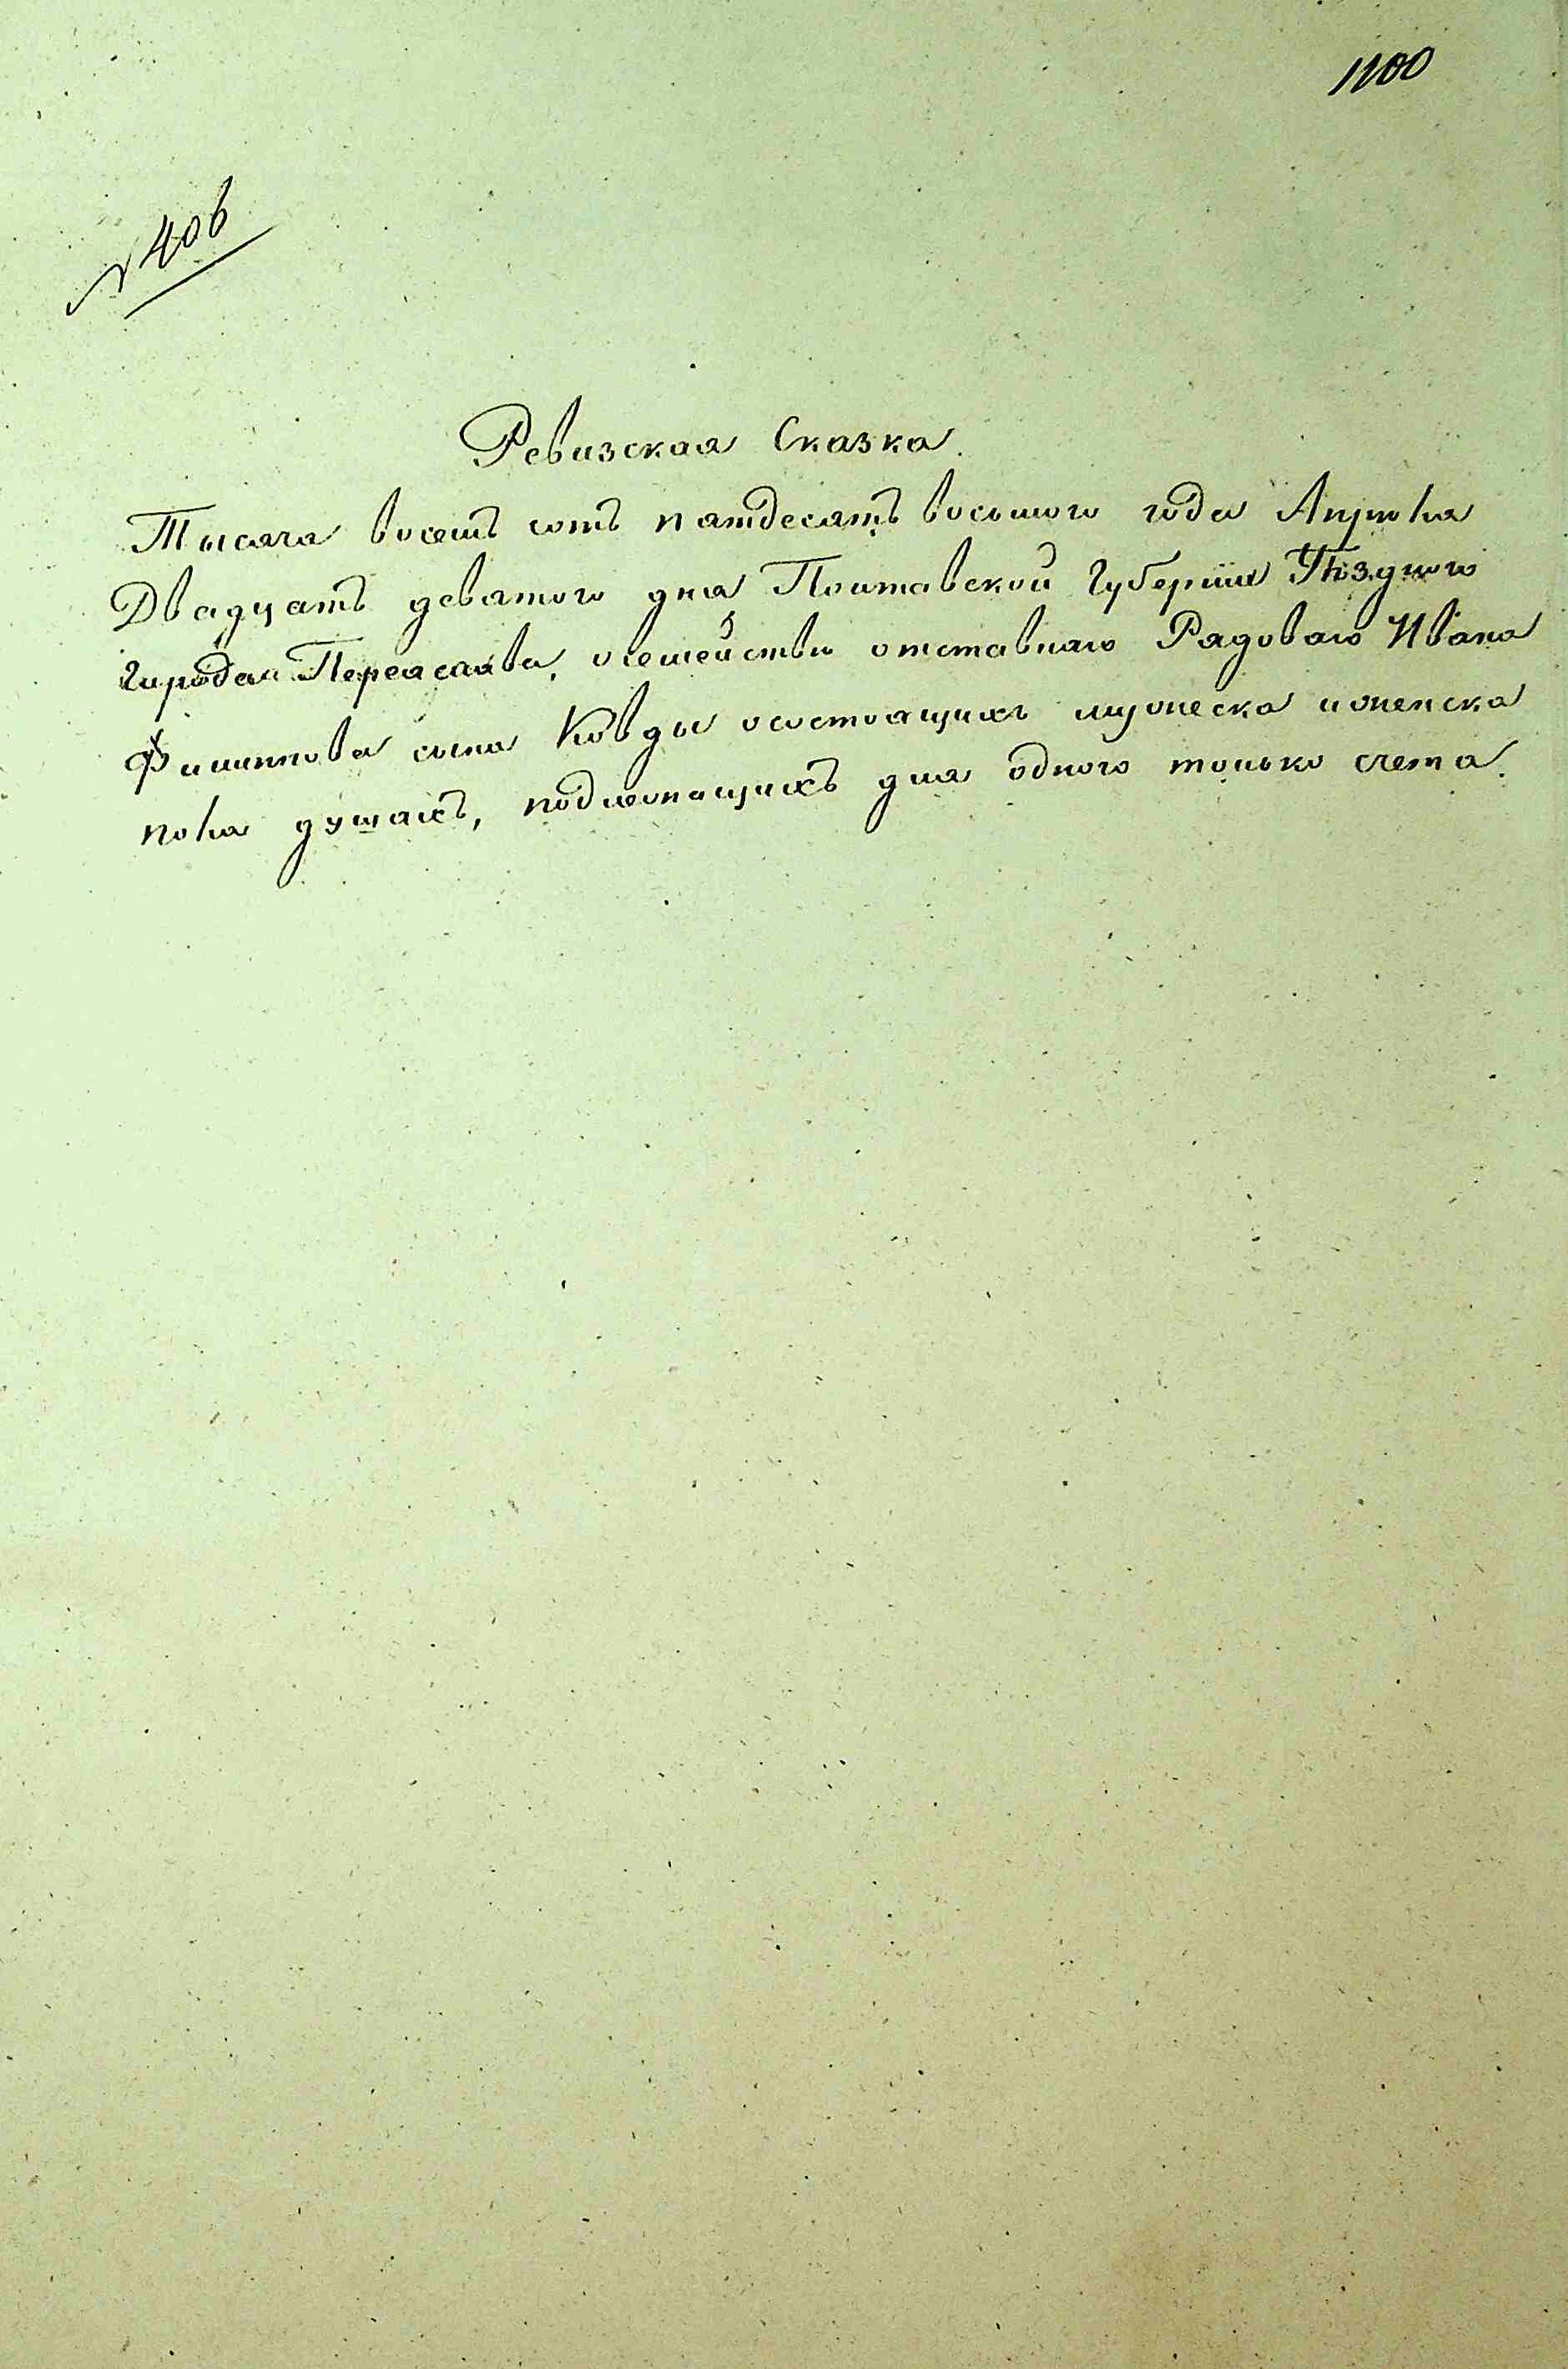 1100
№ 406
Ревизская Сказка.
Тысяча восемъ сотъ пятдесятъ восьмого года Апрѣля
Двадцать девятого дня Полтавской Губерніи Уѣздного
города Переяслава, о семействѣ отставнаго Рядоваго Ивана
Филиппова сына Ковды о состоящихъ мужеска и женска
пола душахъ, подлежащихъ для одного только счета.